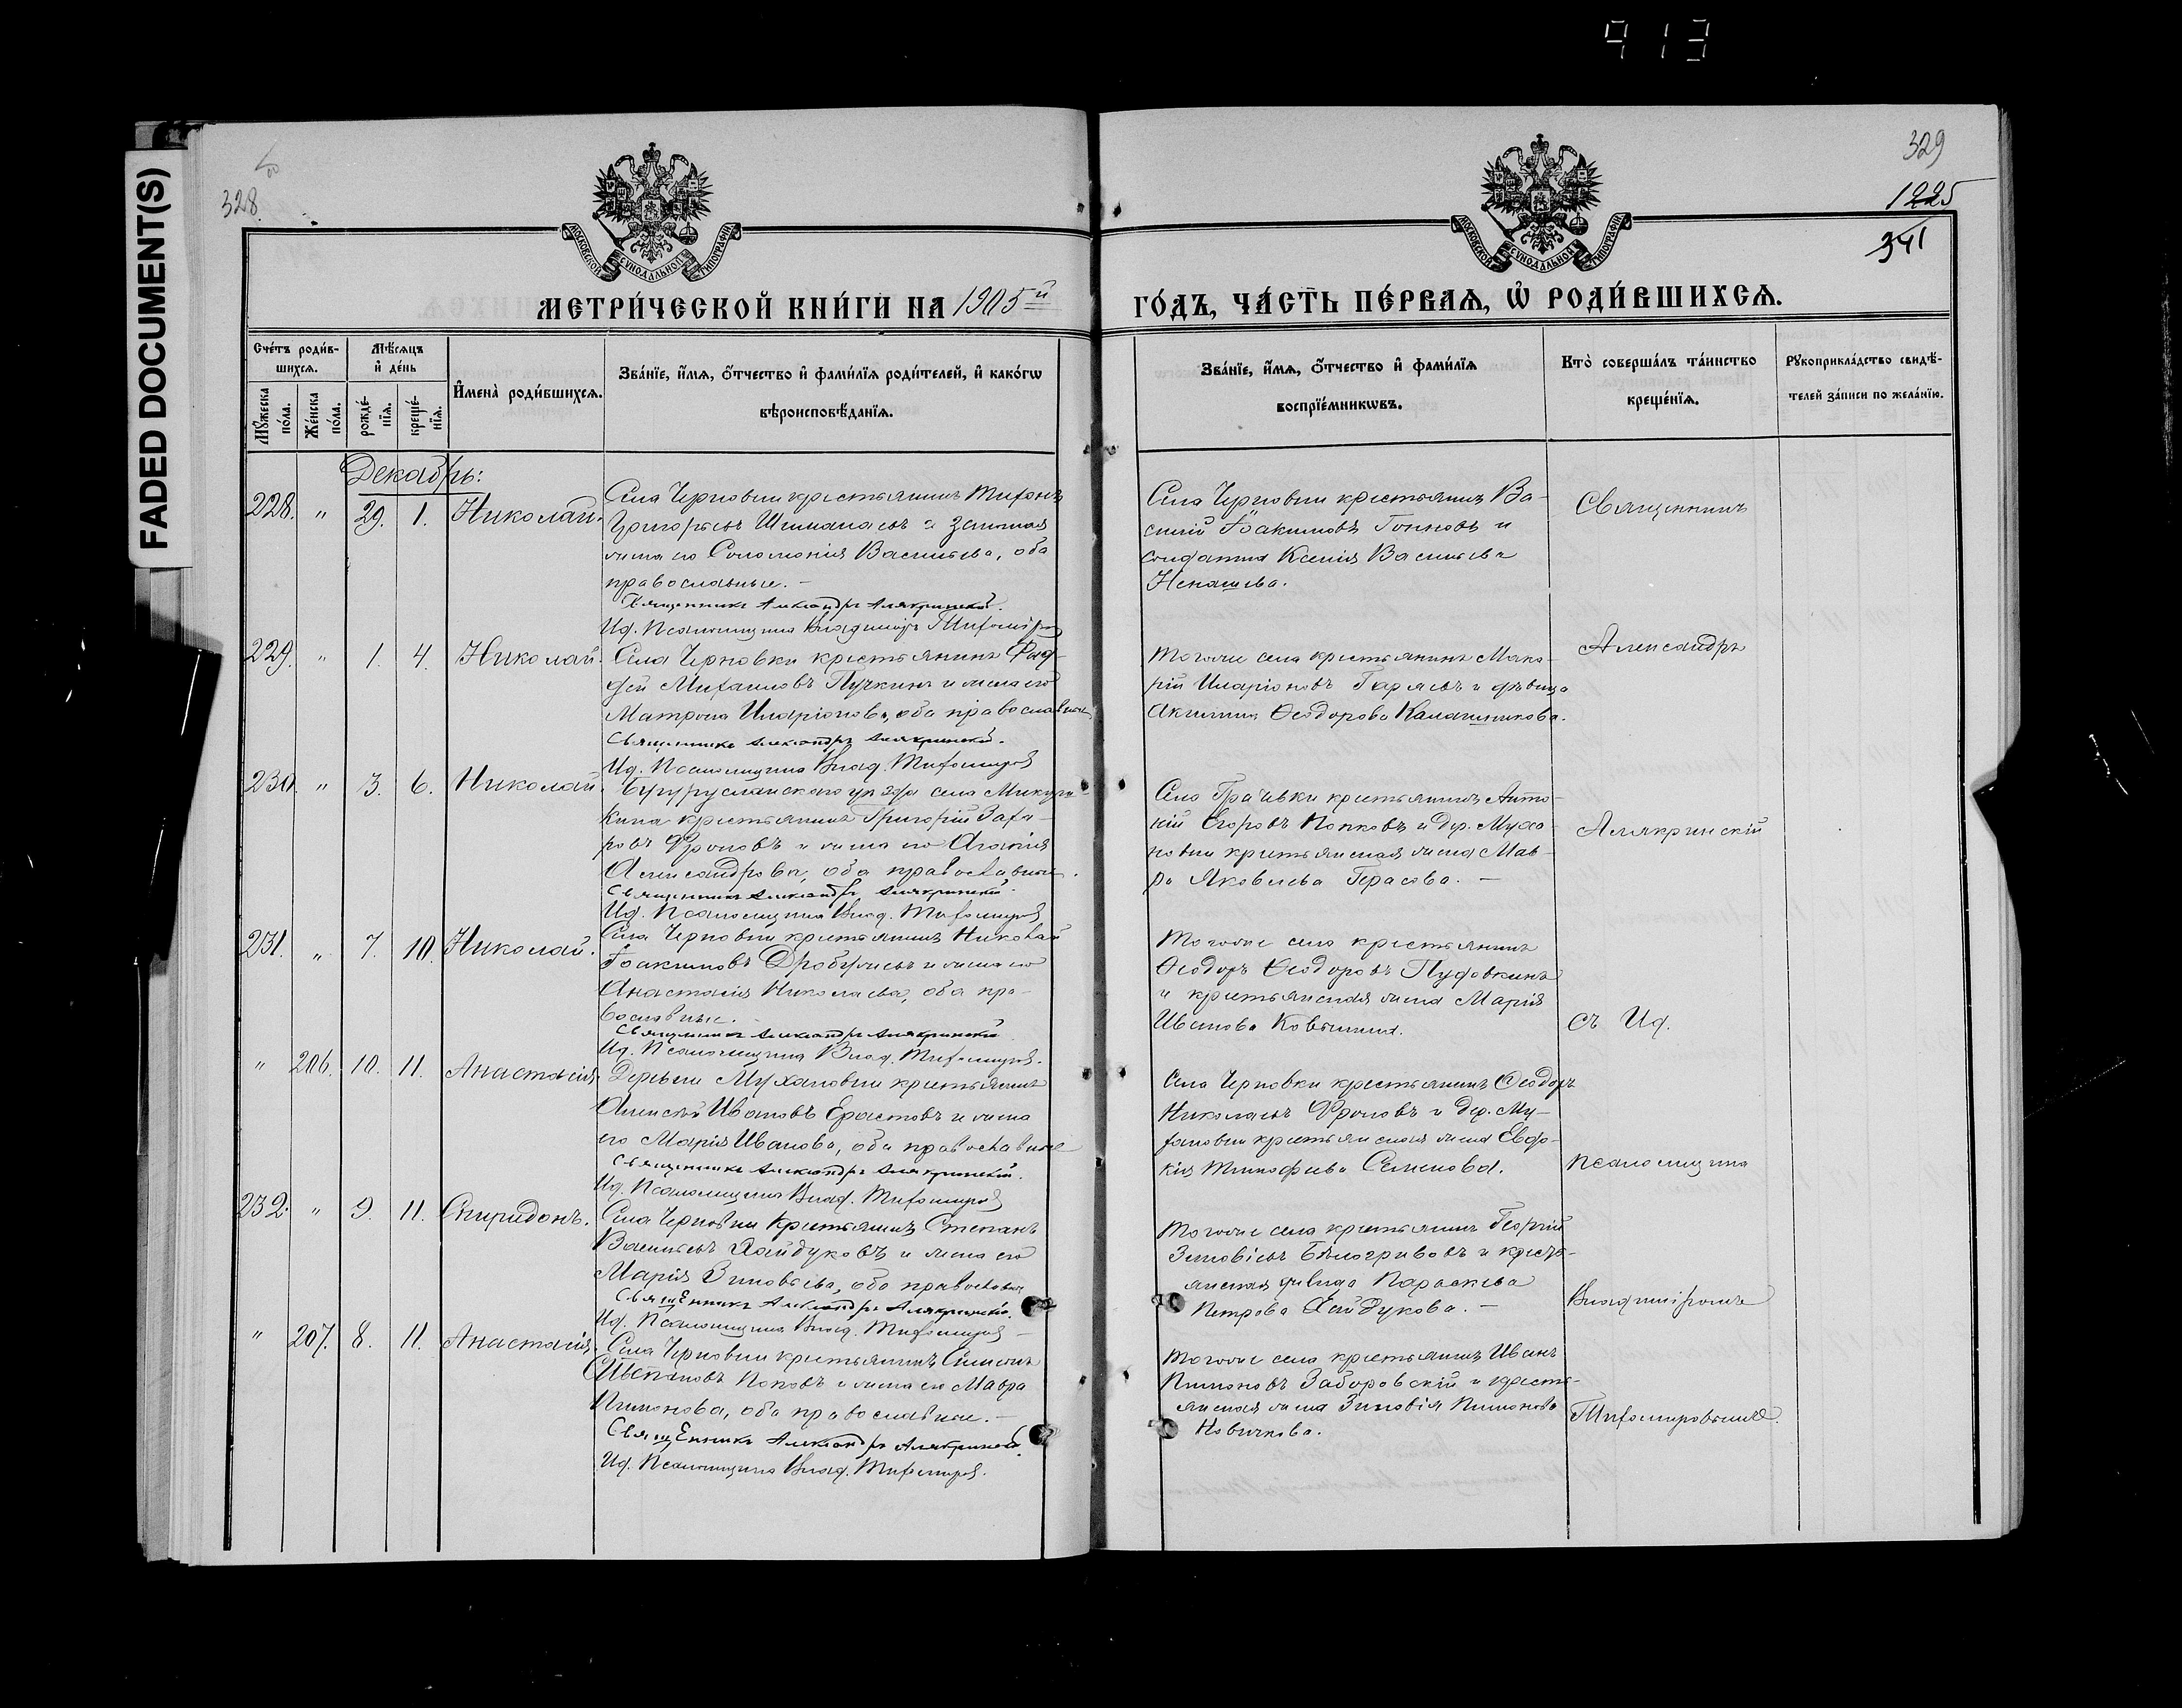 913
FADED DOCUMENT(S)
328.
329
1225
341
МОСКОВСКОЙ СѴНОДАЛЬНОЙ ТИПОГРАФІИ
МОСКОВСКОЙ СѴНОДАЛЬНОЙ ТИПОГРАФІИ
МЕТРИ́ЧЕСКОЙ КНИ́ГИ НА 1905й
ГО́ДЪ, ЧА́СТЬ ПЕ́РВАѦ, Ѡ҆ РОДИ́ВШИХСѦ.
Сче́тъ роди́вшихсѧ.
Мꙋ́жеска по́ла.
Же́нска по́ла.
Мѣ́сѧцъ и҆ де́нь
рожде́нїѧ.
креще́нїѧ.
И҆мена̀ роди́вшихсѧ.
Зва́нїе, и҆́мѧ, ѻ҆́тчество и҆ фами́лїѧ роди́телей, и҆ како́гѡ
вѣроисповѣ́данїѧ.
Зва́нїе, и҆́мѧ, ѻ҆́тчество и҆ фами́лїѧ
воспрїе́мникѡвъ.
Кто̀ соверша́лъ та́инство
креще́нїѧ.
Рꙋкоприкла́дство свидѣ́-
телей за́писи по жела́нїю.
Декабрь:
228. " 29. 1. Николай.
Села Черновки крестьянинъ Тихонъ
Григорьевъ и законная
жена его Соломонія Васильева, оба
православные. –
Священникъ Александръ Алякринскій.
Ид. Псаломщика Владиміръ Тихоміровъ
Села Черновки крестьянинъ Ва-
силій Іоакимовъ и
солдатка Ксенія Васильева
Ненашева.
229. " 1. 4. Николай.
Села Черновки крестьянинъ Фад-
дей Михаиловъ Пучкинъ и жена его
Матрона Иларіонова, оба православные
Священникъ Александръ Алякринскій.
Ид. Псаломщика Влад. Тихомировъ
Тогоже села крестьянинъ Мака-
рій Иларіоновъ и дѣвица
Акилина Ѳеодорова Калашникова.
230. " 3. 6. Николай.
Бугурусланскаго уѣзда села Микуш-
кина крестьянинъ Григорій Заха-
ровъ Фроловъ и жена его Агафія
Александрова, оба православные.
Священникъ Александръ Алякринскій.
Ид. Псаломщика Влад. Тихомировъ
Села Грачевки крестьянинъ Анто-
ній Егоровъ Попковъ и дер. Муха-
новки крестьянская жена Мав-
ра Яковлева –
231. " 7. 10. Николай.
Села Черновки крестьянинъ Николай
Іоакимовъ и жена его
Анастасія Николаева, оба пра-
вославные.
Священникъ Александръ Алякринскій
Ид. Псаломщика Влад. Тихомировъ.
Тогоже села крестьянинъ
Ѳеодоръ Ѳеодоровъ Пудовкинъ
и крестьянская жена Марія
Иванова
" 206. 10. 11. Анастасія.
Деревни Мухановки крестьянинъ
Алексѣй Ивановъ Ерастовъ и жена
его Марія Иванова, оба православные
Священникъ Александръ Алякринскій.
Ид. Псаломщика Влад. Тихомировъ
Села Черновки крестьянинъ Ѳеодоръ
Николаевъ Фроловъ и дер. Му-
хановки крестьянская жена Евдо-
кія Тимофеева Семенова.
232. " 9. 11. Спиридонъ.
Села Черновки крестьянинъ Степанъ
Васильевъ Хайдуковъ и жена его
Марія Зиновьева, оба православные
Священникъ Александръ Алякринскій.
Ид. Псаломщика Влад. Тихомировъ
Тогоже села крестьянинъ Георгій
Зиновіевъ Бѣлогривовъ и кресть-
янская дѣвица Параскева
Петрова Хайдукова. –
" 207. 8. 11. Анастасія.
Села Черновки крестьянинъ Симеонъ
Стефановъ Поповъ и жена его Мавра
Пименова, оба православные. –
Священникъ Александръ Алякринскій.
Ид. Псаломщика Влад. Тихомировъ.
Тогоже села крестьянинъ Иванъ
Пименовъ Заборовскій и кресть-
янская жена Зиновія Пименова
Новичкова.
Священникъ
Александръ
Алякринскій
съ Ид.
Псаломщика
Владиміромъ
Тихомировымъ.